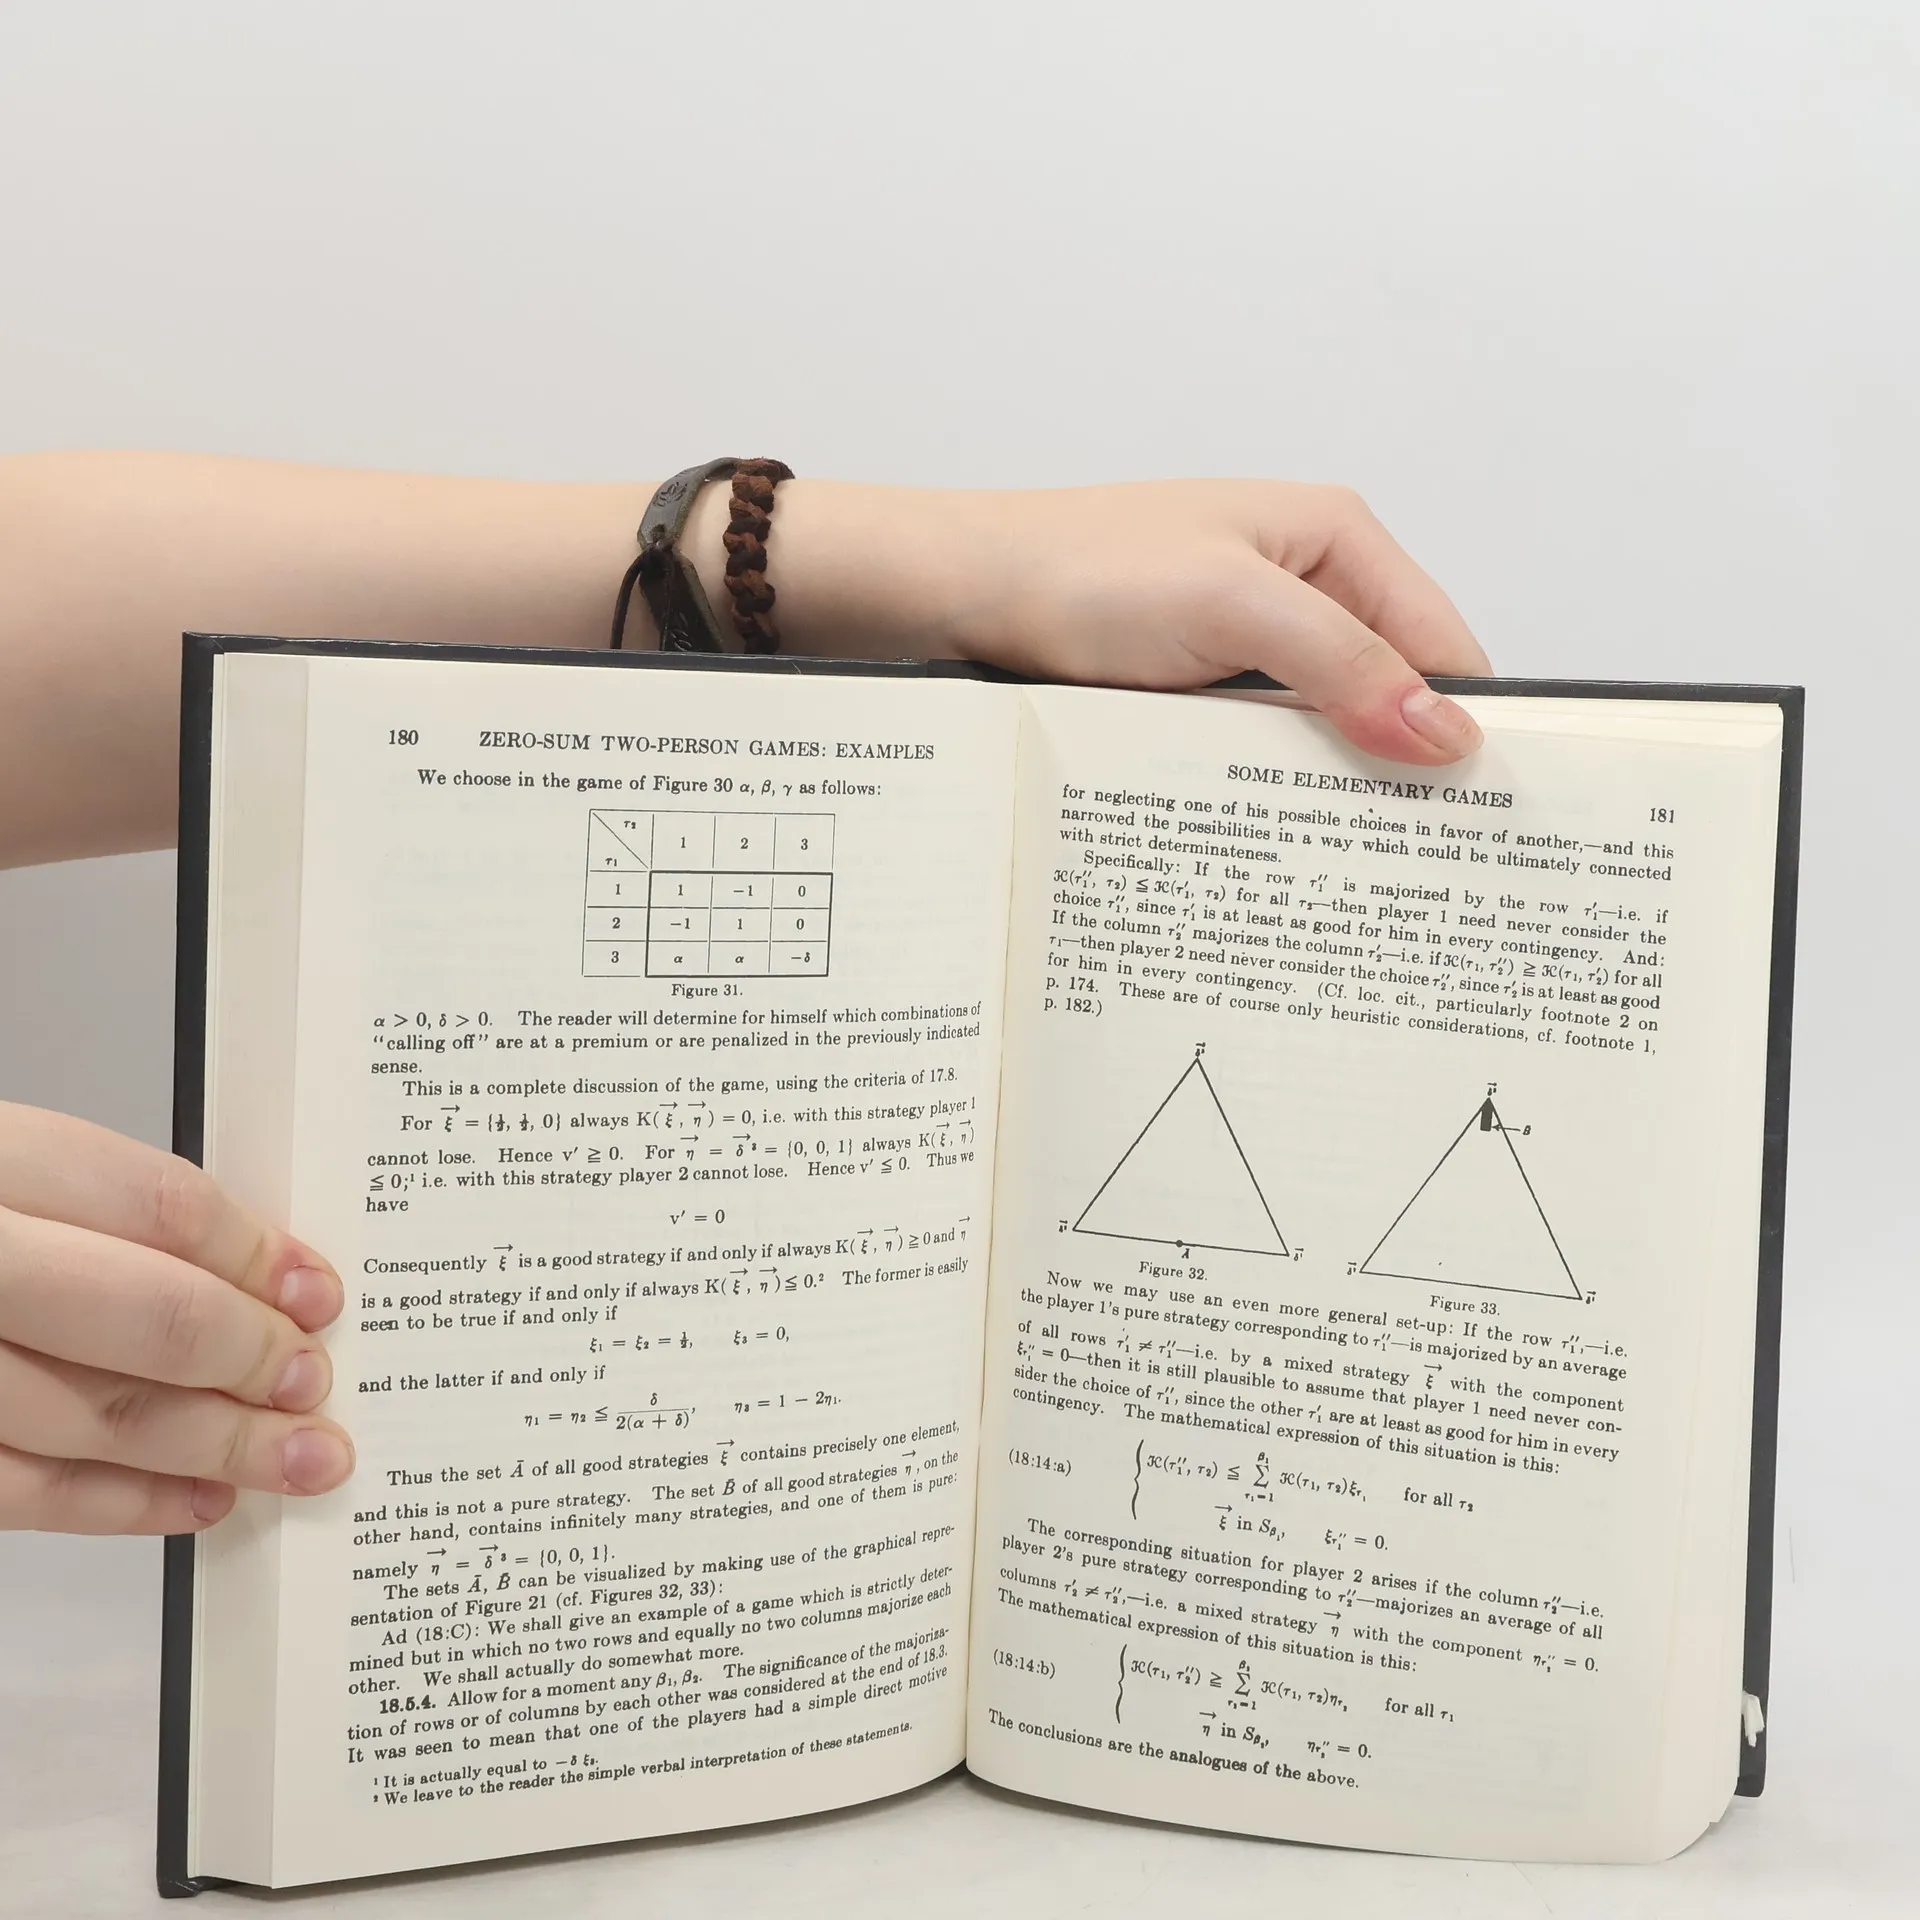 180 ZERO-SUM TWO-PERSON GAMES: EXAMPLES
We choose in the game of Figure 30 α, β, γ as follows:
τ₂ 1 2 3
τ₁
1 1 −1 0
2 −1 1 0
3 α α −δ
Figure 31.
α > 0, δ > 0. The reader will determine for himself which combinations of
"calling off" are at a premium or are penalized in the previously indicated
sense.
This is a complete discussion of the game, using the criteria of 17.8.
For ξ⃗ = {½, ½, 0} always K(ξ⃗, η⃗) = 0, i.e. with this strategy player 1
cannot lose. Hence v′ ≧ 0. For η⃗ = δ⃗³ = {0, 0, 1} always K(ξ⃗, η⃗)
≦ 0;¹ i.e. with this strategy player 2 cannot lose. Hence v′ ≦ 0. Thus we
have
v′ = 0
Consequently ξ⃗ is a good strategy if and only if always K(ξ⃗, η⃗) ≧ 0 and η⃗
is a good strategy if and only if always K(ξ⃗, η⃗) ≦ 0.² The former is easily
seen to be true if and only if
ξ₁ = ξ₂ = ½, ξ₃ = 0,
and the latter if and only if
η₁ = η₂ ≦ δ/2(α + δ), η₃ = 1 − 2η₁.
Thus the set Ā of all good strategies ξ⃗ contains precisely one element,
and this is not a pure strategy. The set B̄ of all good strategies η⃗, on the
other hand, contains infinitely many strategies, and one of them is pure:
namely η⃗ = δ⃗³ = {0, 0, 1}.
The sets Ā, B̄ can be visualized by making use of the graphical repre-
sentation of Figure 21 (cf. Figures 32, 33):
Ad (18:C): We shall give an example of a game which is strictly deter-
mined but in which no two rows and equally no two columns majorize each
other. We shall actually do somewhat more.
18.5.4. Allow for a moment any β₁, β₂. The significance of the majoriza-
tion of rows or of columns by each other was considered at the end of 18.3.
It was seen to mean that one of the players had a simple direct motive
¹ It is actually equal to −δ ξ₃.
² We leave to the reader the simple verbal interpretation of these statements.
SOME ELEMENTARY GAMES 181
for neglecting one of his possible choices in favor of another,—and this
narrowed the possibilities in a way which could be ultimately connected
with strict determinateness.
Specifically: If the row τ₁″ is majorized by the row τ₁′—i.e. if
ℋ(τ₁″, τ₂) ≦ ℋ(τ₁′, τ₂) for all τ₂—then player 1 need never consider the
choice τ₁″, since τ₁′ is at least as good for him in every contingency. And:
If the column τ₂″ majorizes the column τ₂′—i.e. if ℋ(τ₁, τ₂″) ≧ ℋ(τ₁, τ₂′) for all
τ₁—then player 2 need never consider the choice τ₂″, since τ₂′ is at least as good
for him in every contingency. (Cf. loc. cit., particularly footnote 2 on
p. 174. These are of course only heuristic considerations, cf. footnote 1,
p. 182.)
Ā
B̄
Figure 32.
Figure 33.
Now we may use an even more general set-up: If the row τ₁″,—i.e.
the player 1's pure strategy corresponding to τ₁″—is majorized by an average
of all rows τ₁′ ≠ τ₁″—i.e. by a mixed strategy ξ⃗ with the component
ξτ₁″ = 0—then it is still plausible to assume that player 1 need never con-
sider the choice of τ₁″, since the other τ₁′ are at least as good for him in every
contingency. The mathematical expression of this situation is this:
(18:14:a) { ℋ(τ₁″, τ₂) ≦ Σ_{τ₁=1}^{β₁} ℋ(τ₁, τ₂)ξτ₁ for all τ₂
ξ⃗ in Sβ₁, ξτ₁″ = 0.
The corresponding situation for player 2 arises if the column τ₂″—i.e.
player 2's pure strategy corresponding to τ₂″—majorizes an average of all
columns τ₂′ ≠ τ₂″,—i.e. a mixed strategy η⃗ with the component ητ₂″ = 0.
The mathematical expression of this situation is this:
(18:14:b) { ℋ(τ₁, τ₂″) ≧ Σ_{τ₂=1}^{β₂} ℋ(τ₁, τ₂)ητ₂ for all τ₁
η⃗ in Sβ₂, ητ₂″ = 0.
The conclusions are the analogues of the above.